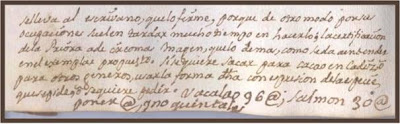 se lleva al escrivano, que lo firme, porque de otro modo por sus
ocupaciones suelen tardar mucho tiempo en hacerlo; la certificacion
de la Priora de Margen, que lo demas, como se da a entender
en el exemplar propuesto. Si se quiere sacar para cacao en
para otros generos, varia la forma dha con espresion de la especie
que se pide o se quiere pedir. Vacalao 96 @; salmon 30 @
poner @, y no quintal